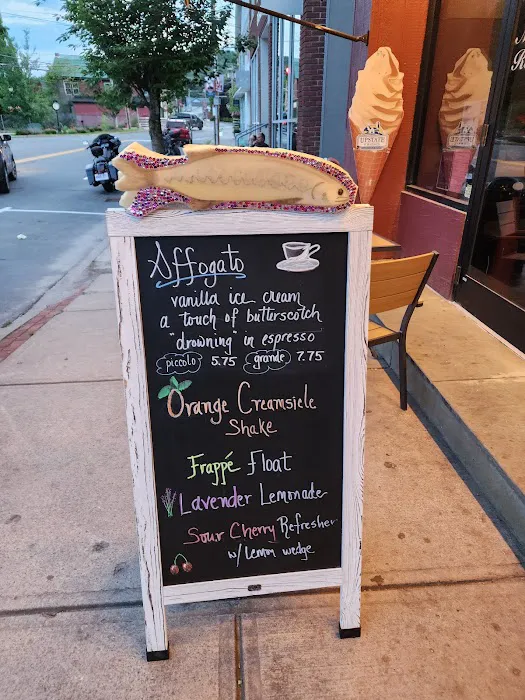 Affogato
vanilla ice cream
a touch of butterscotch
"drowning" in espresso
piccolo 5.75 grande 7.75
Orange Creamsicle
Shake
Frappé Float
Lavender Lemonade
Sour Cherry Refresher
w/ lemon wedge
UPSTATE